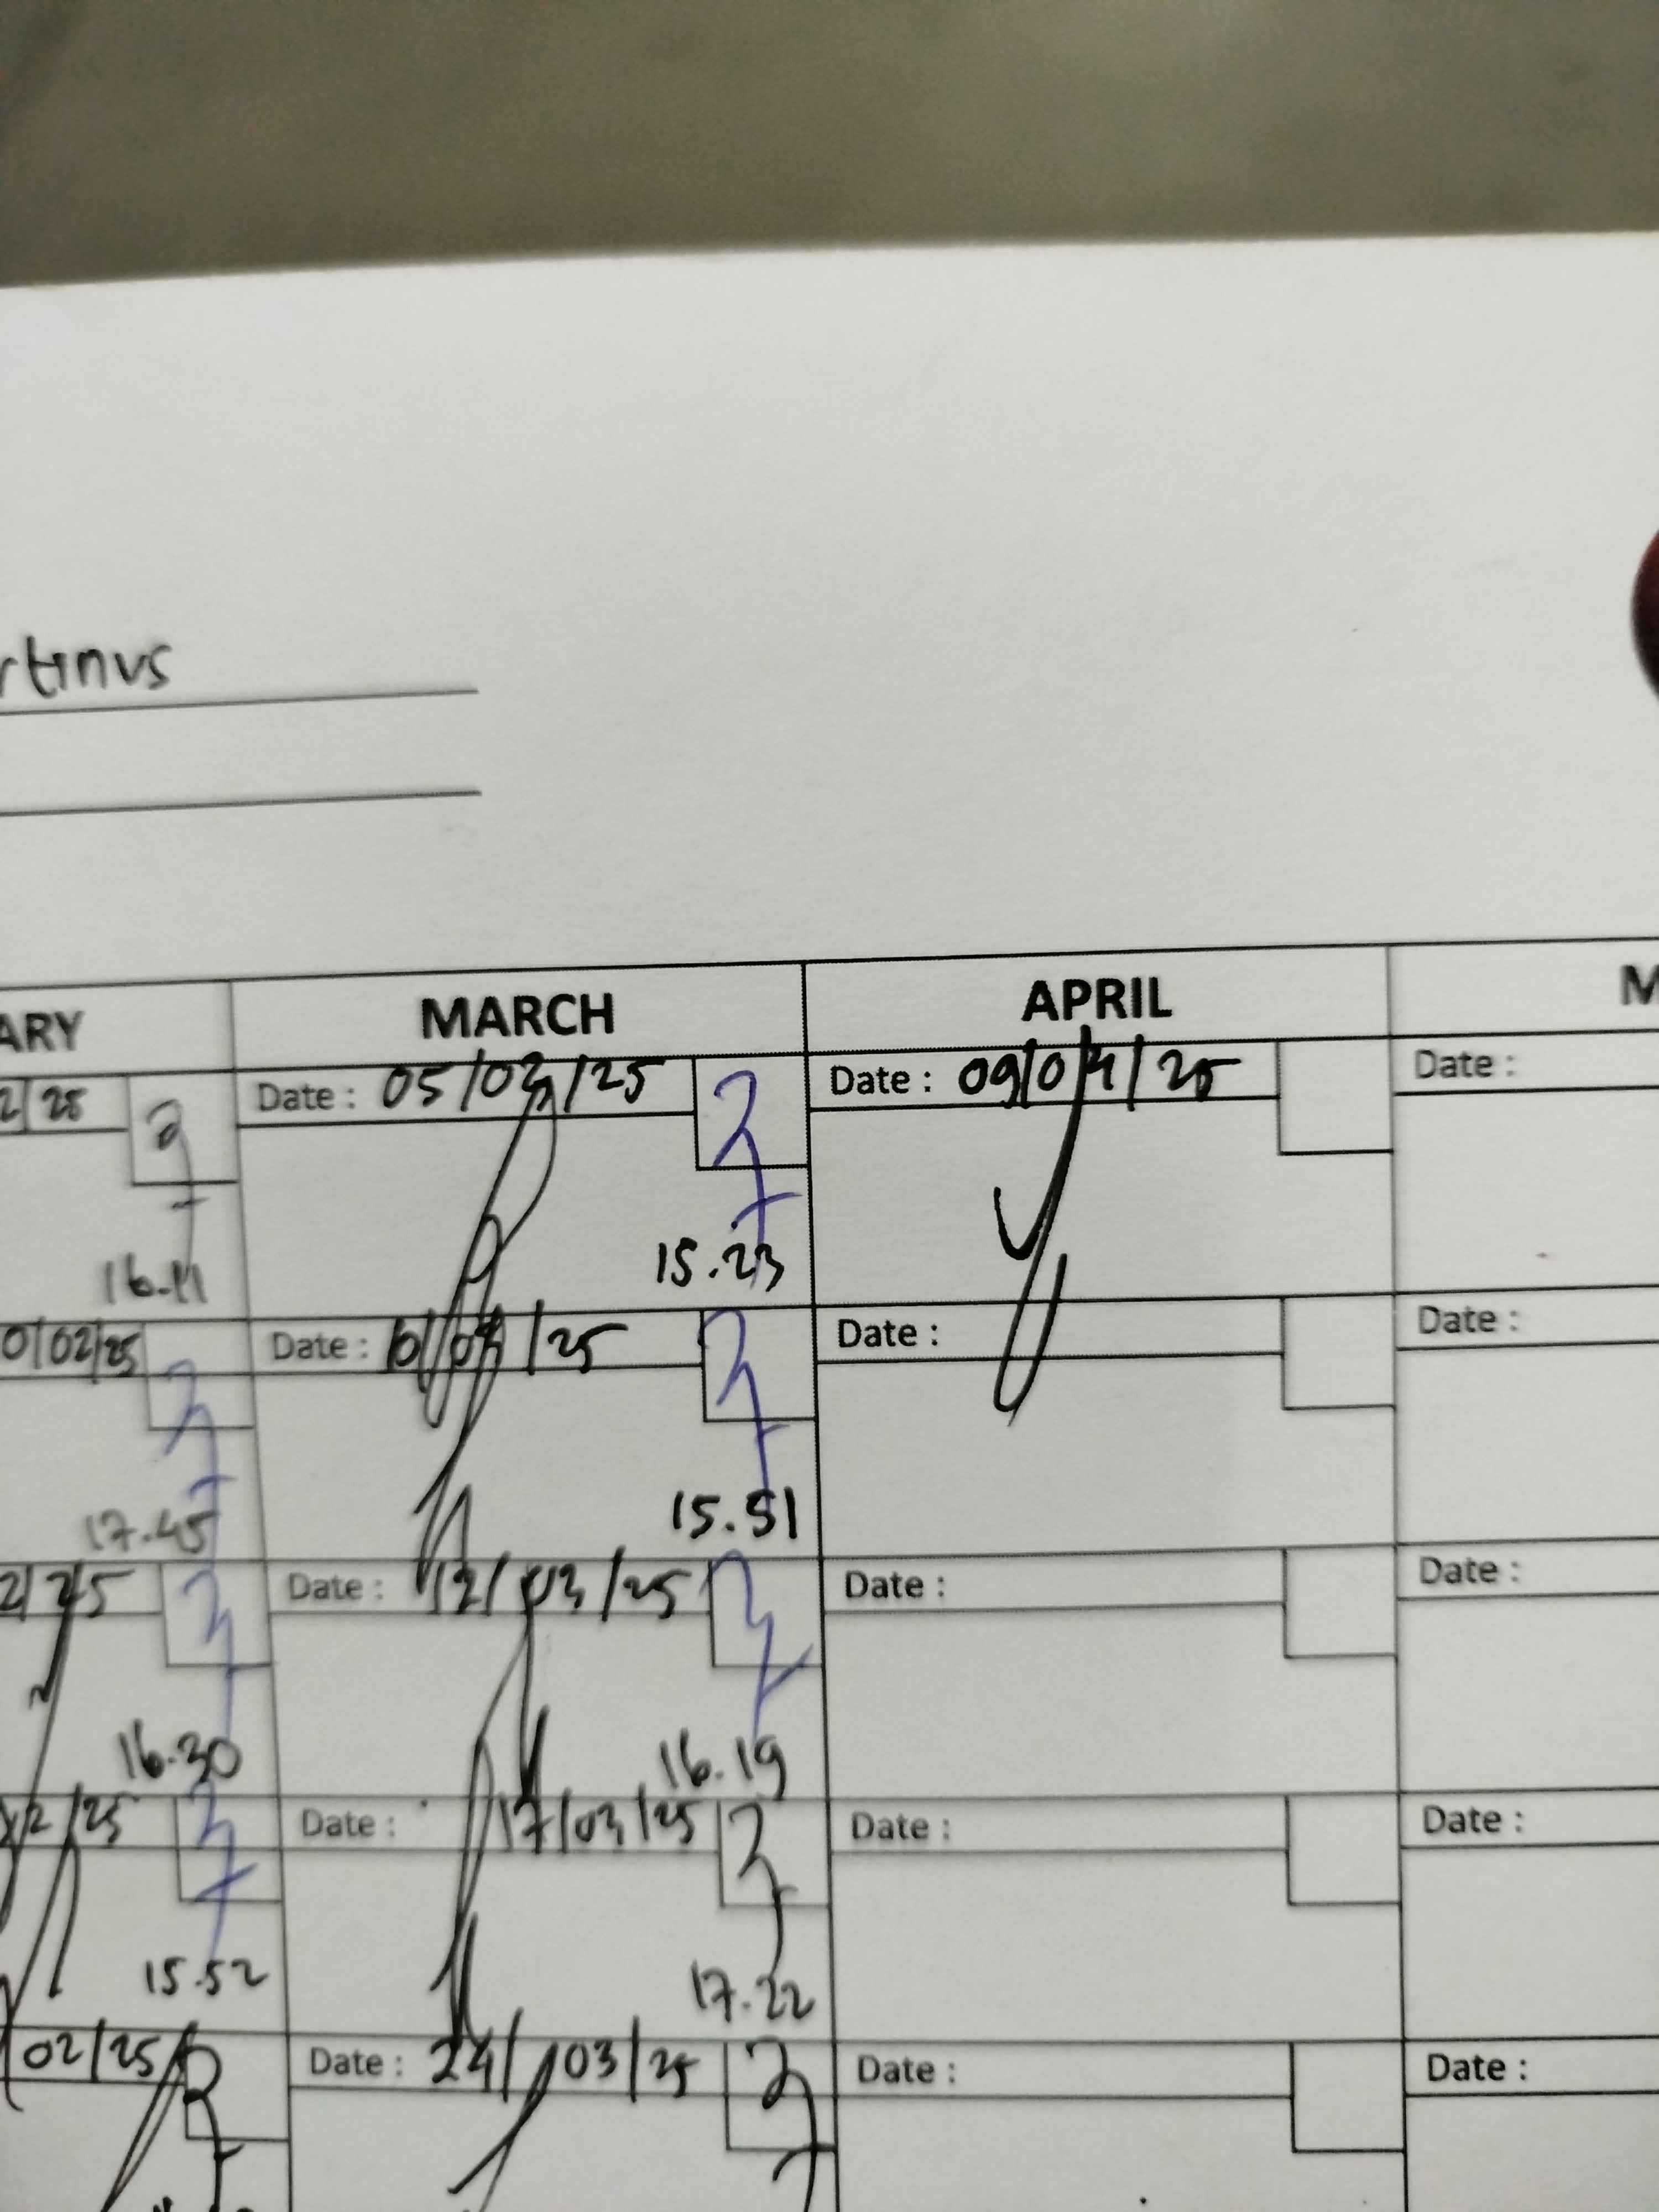 rtinus
ARY MARCH APRIL M
2/25 Date : 05/03/25 Date : 09/04/25 Date :
16.11 15.23
0/02/25 Date : 10/03/25 Date : Date :
17.45 15.51
2/25 Date : 12/03/25 Date : Date :
16.30 16.19
2/25 Date : 17/03/25 Date : Date :
15.52 17.22
02/25 Date : 24/03/25 Date : Date :